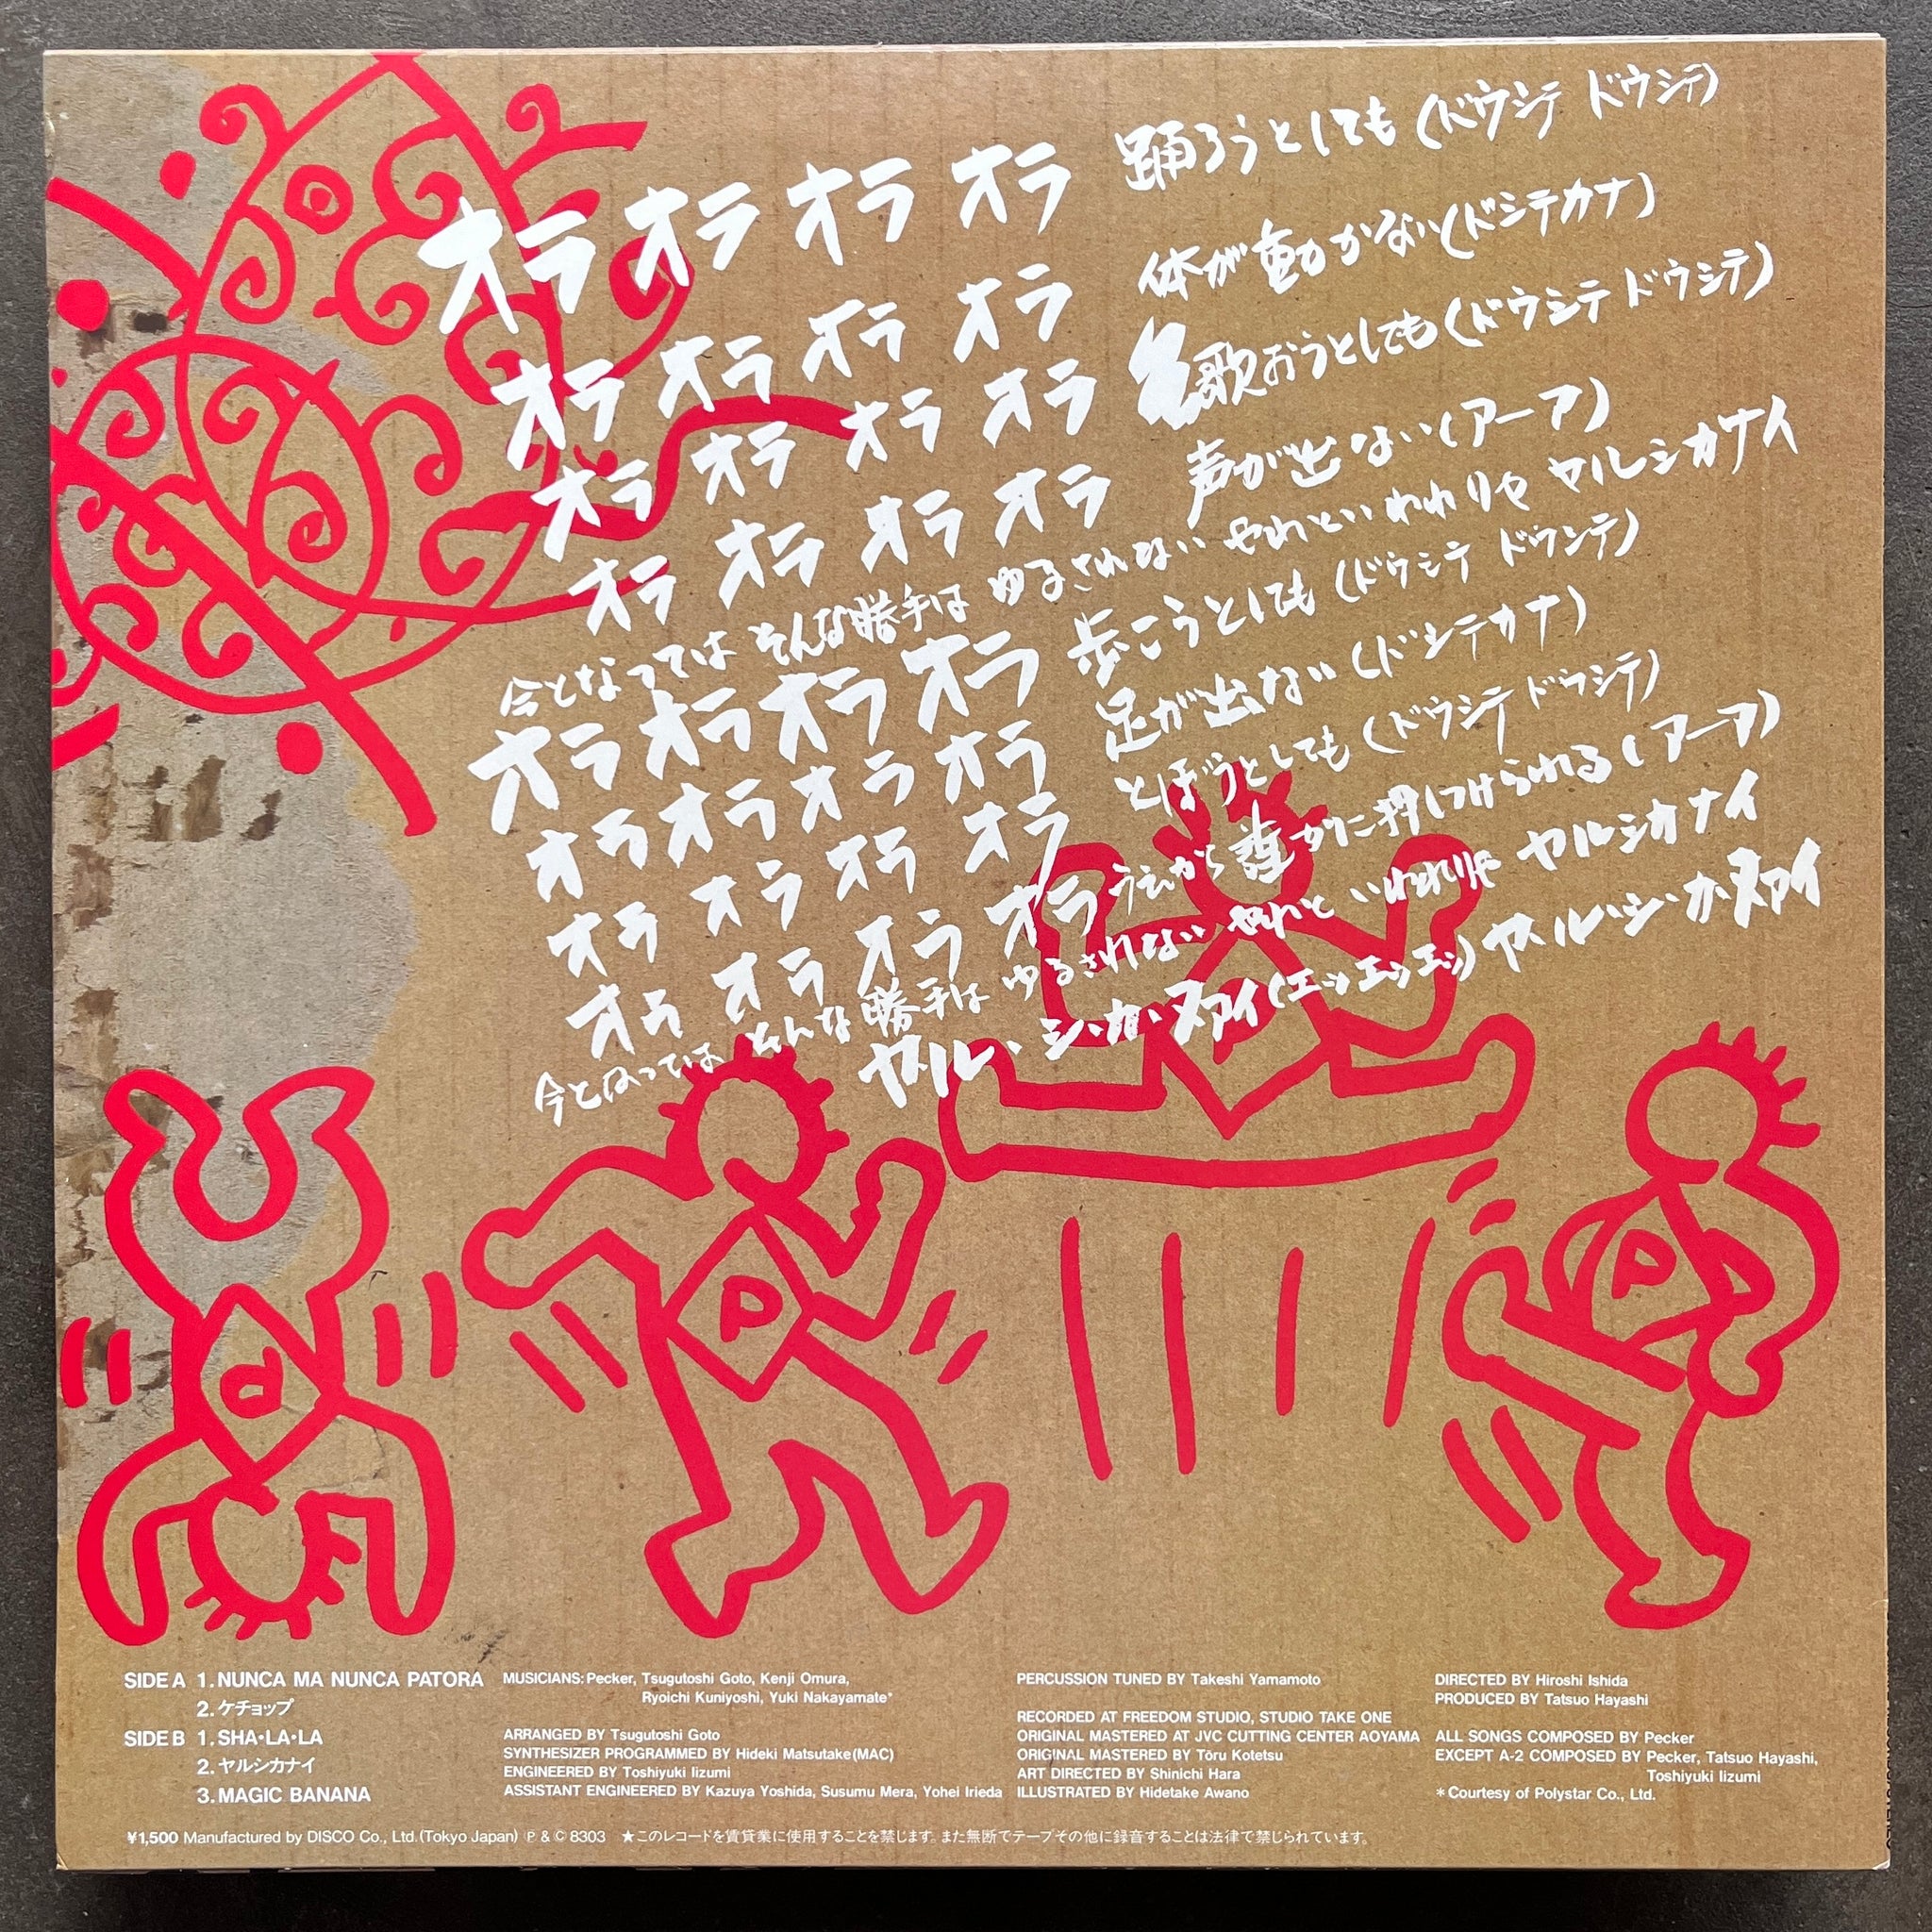 オラ オラ オラ オラ 踊ろうとしても(ドウシテ ドウシテ)
オラ オラ オラ オラ 体が動かない(ドシテカナ)
オラ オラ オラ オラ 歌おうとしても(ドウシテ ドウシテ)
オラ オラ オラ オラ 声が出ない(アーア)
今となっては そんな勝手は ゆるされない やれといわれりゃ ヤルシカナイ
オラ オラ オラ オラ 歩こうとしても(ドウシテ ドウシテ)
オラ オラ オラ オラ 足が出ない(ドシテカナ)
オラ オラ オラ オラ とぼうとしても(ドウシテ ドウシテ)
オラ オラ オラ オラ うえから誰かに押しつけられる(アーア)
今となっては そんな勝手は ゆるされない やれと いわれりゃ ヤルシカナイ
ヤ・ル・シ・カ・ヌァイ(エッエッエッ)ヤ・ル・シ・カ・ヌァイ
P
P
P
P
SIDE A 1. NUNCA MA NUNCA PATORA
2. ケチョップ
SIDE B 1. SHA・LA・LA
2. ヤルシカナイ
3. MAGIC BANANA
MUSICIANS: Pecker, Tsugutoshi Goto, Kenji Omura,
Ryoichi Kuniyoshi, Yuki Nakayamate*
ARRANGED BY Tsugutoshi Goto
SYNTHESIZER PROGRAMMED BY Hideki Matsutake(MAC)
ENGINEERED BY Toshiyuki Iizumi
ASSISTANT ENGINEERED BY Kazuya Yoshida, Susumu Mera, Yohei Irieda
PERCUSSION TUNED BY Takeshi Yamamoto
RECORDED AT FREEDOM STUDIO, STUDIO TAKE ONE
ORIGINAL MASTERED AT JVC CUTTING CENTER AOYAMA
ORIGINAL MASTERED BY Tōru Kotetsu
ART DIRECTED BY Shinichi Hara
ILLUSTRATED BY Hidetake Awano
DIRECTED BY Hiroshi Ishida
PRODUCED BY Tatsuo Hayashi
ALL SONGS COMPOSED BY Pecker
EXCEPT A-2 COMPOSED BY Pecker, Tatsuo Hayashi,
Toshiyuki Iizumi
*Courtesy of Polystar Co., Ltd.
¥1,500 Manufactured by DISCO Co., Ltd. (Tokyo Japan) Ⓟ & © 8303 ★このレコードを賃貸業に使用することを禁じます。また無断でテープその他に録音することは法律で禁じられています。